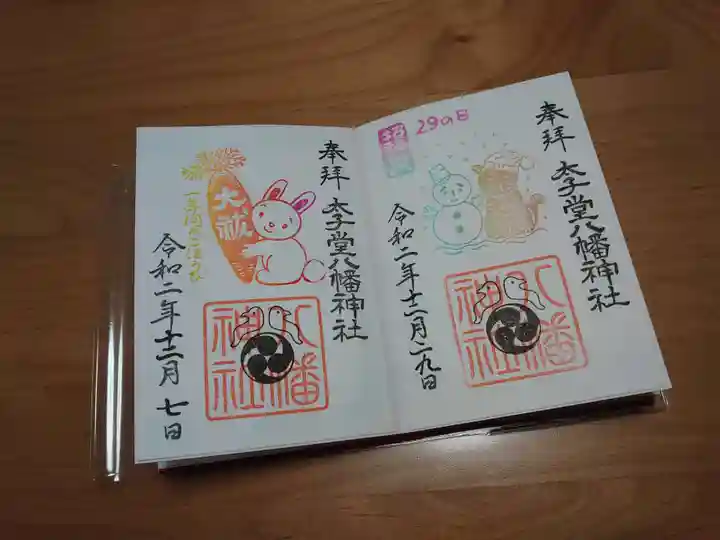 奉拝
太子堂八幡神社
29の日
令和二年十二月二九日
八幡
神社
奉拝
太子堂八幡神社
大祓
令和二年十二月七日
八幡
神社